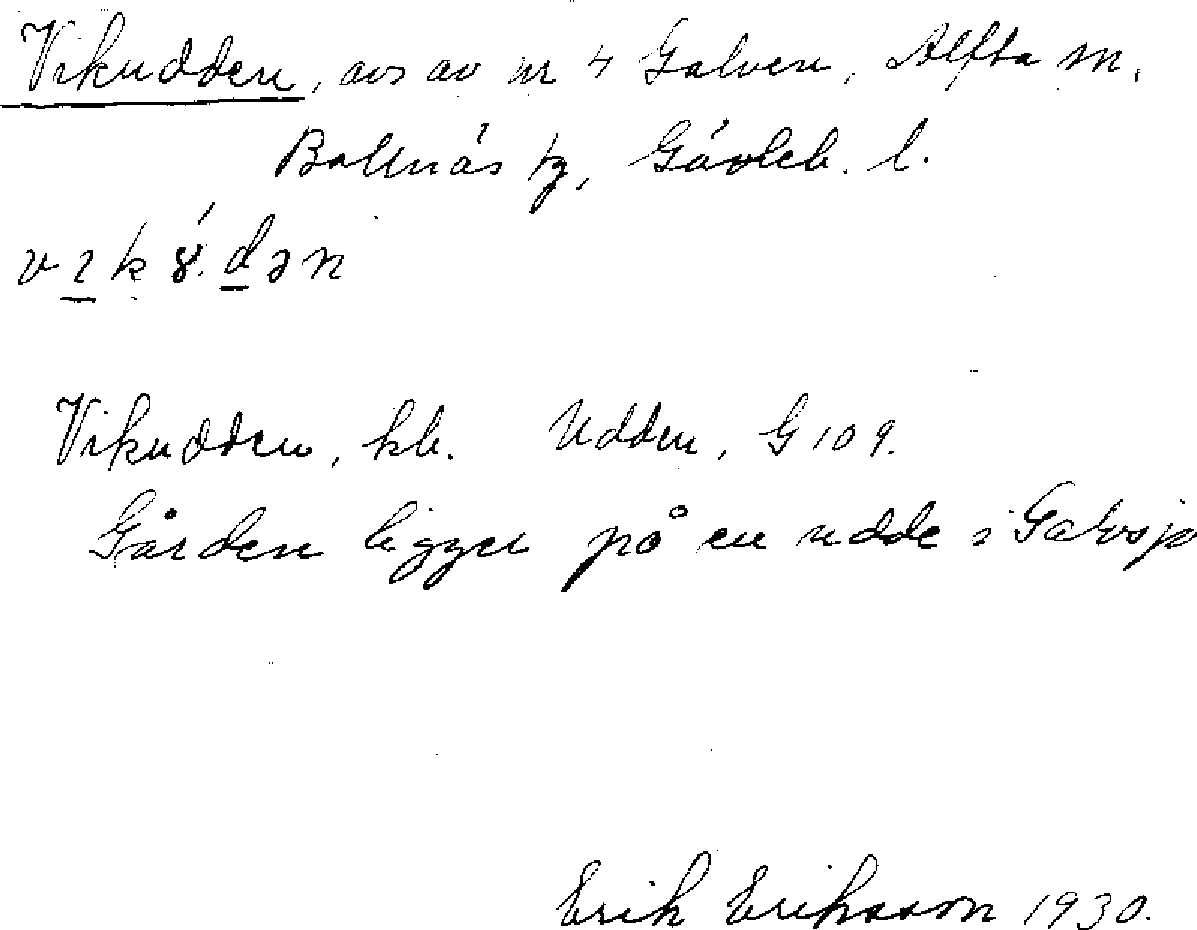 Vikudden, avs av nr 4 Galven, Alfta sn.
Bollnäs tg, Gävleb. l.
Vikudden, kb. Udden, G 109.
Gården ligger på en udde i Galvsjö
Erik Eriksson 1930.